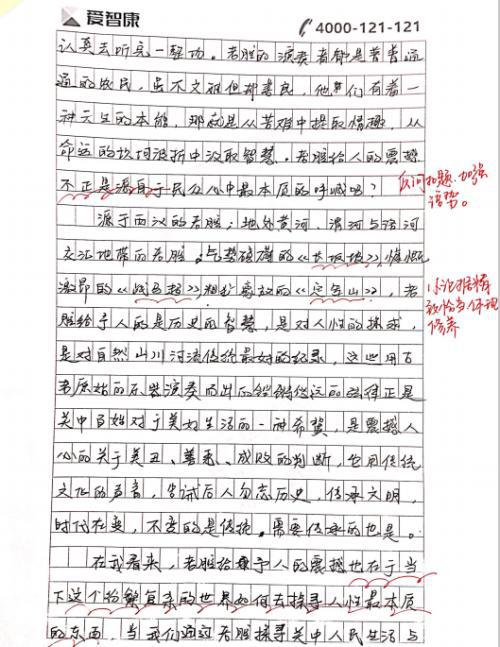 爱智康
4000-121-121
认真去听完一整场。老腔的演奏者都是普普通
通的农民，虽不文雅但却善良，他们有着一
种天生的本能，那就是从苦难中提取情趣，从
命运的坎坷波折中汲取智慧。老腔给人的震撼
不正是源自于民众心中最本质的呼喊吗？
反问扣题，加强
语势。
源于西汉的老腔；地处黄河、渭河与洛河
交汇地带的老腔。气势磅礴的《长坂坡》慷慨
激昂的《战马超》粗犷豪放的《定军山》，老
腔给予人的是历史的智慧，是对人性的探求，
是对自然山川河流传统最好的纪录，这些用古
老原始的乐器演奏而出的铿锵悠远的旋律正是
关中百姓对于美好生活的一种希冀，是震撼人
心的关于美丑、善恶、成败的判断，它用传统
文化的声音，告诫后人勿忘历史，传承文明，
时代在变，不变的是传统。需要传承的也是。
在我看来，老腔给予人的震撼也在于当
下这个纷繁复杂的世界如何去探寻人性最本质
的东西，当我们通过老腔探寻关中人民生活与